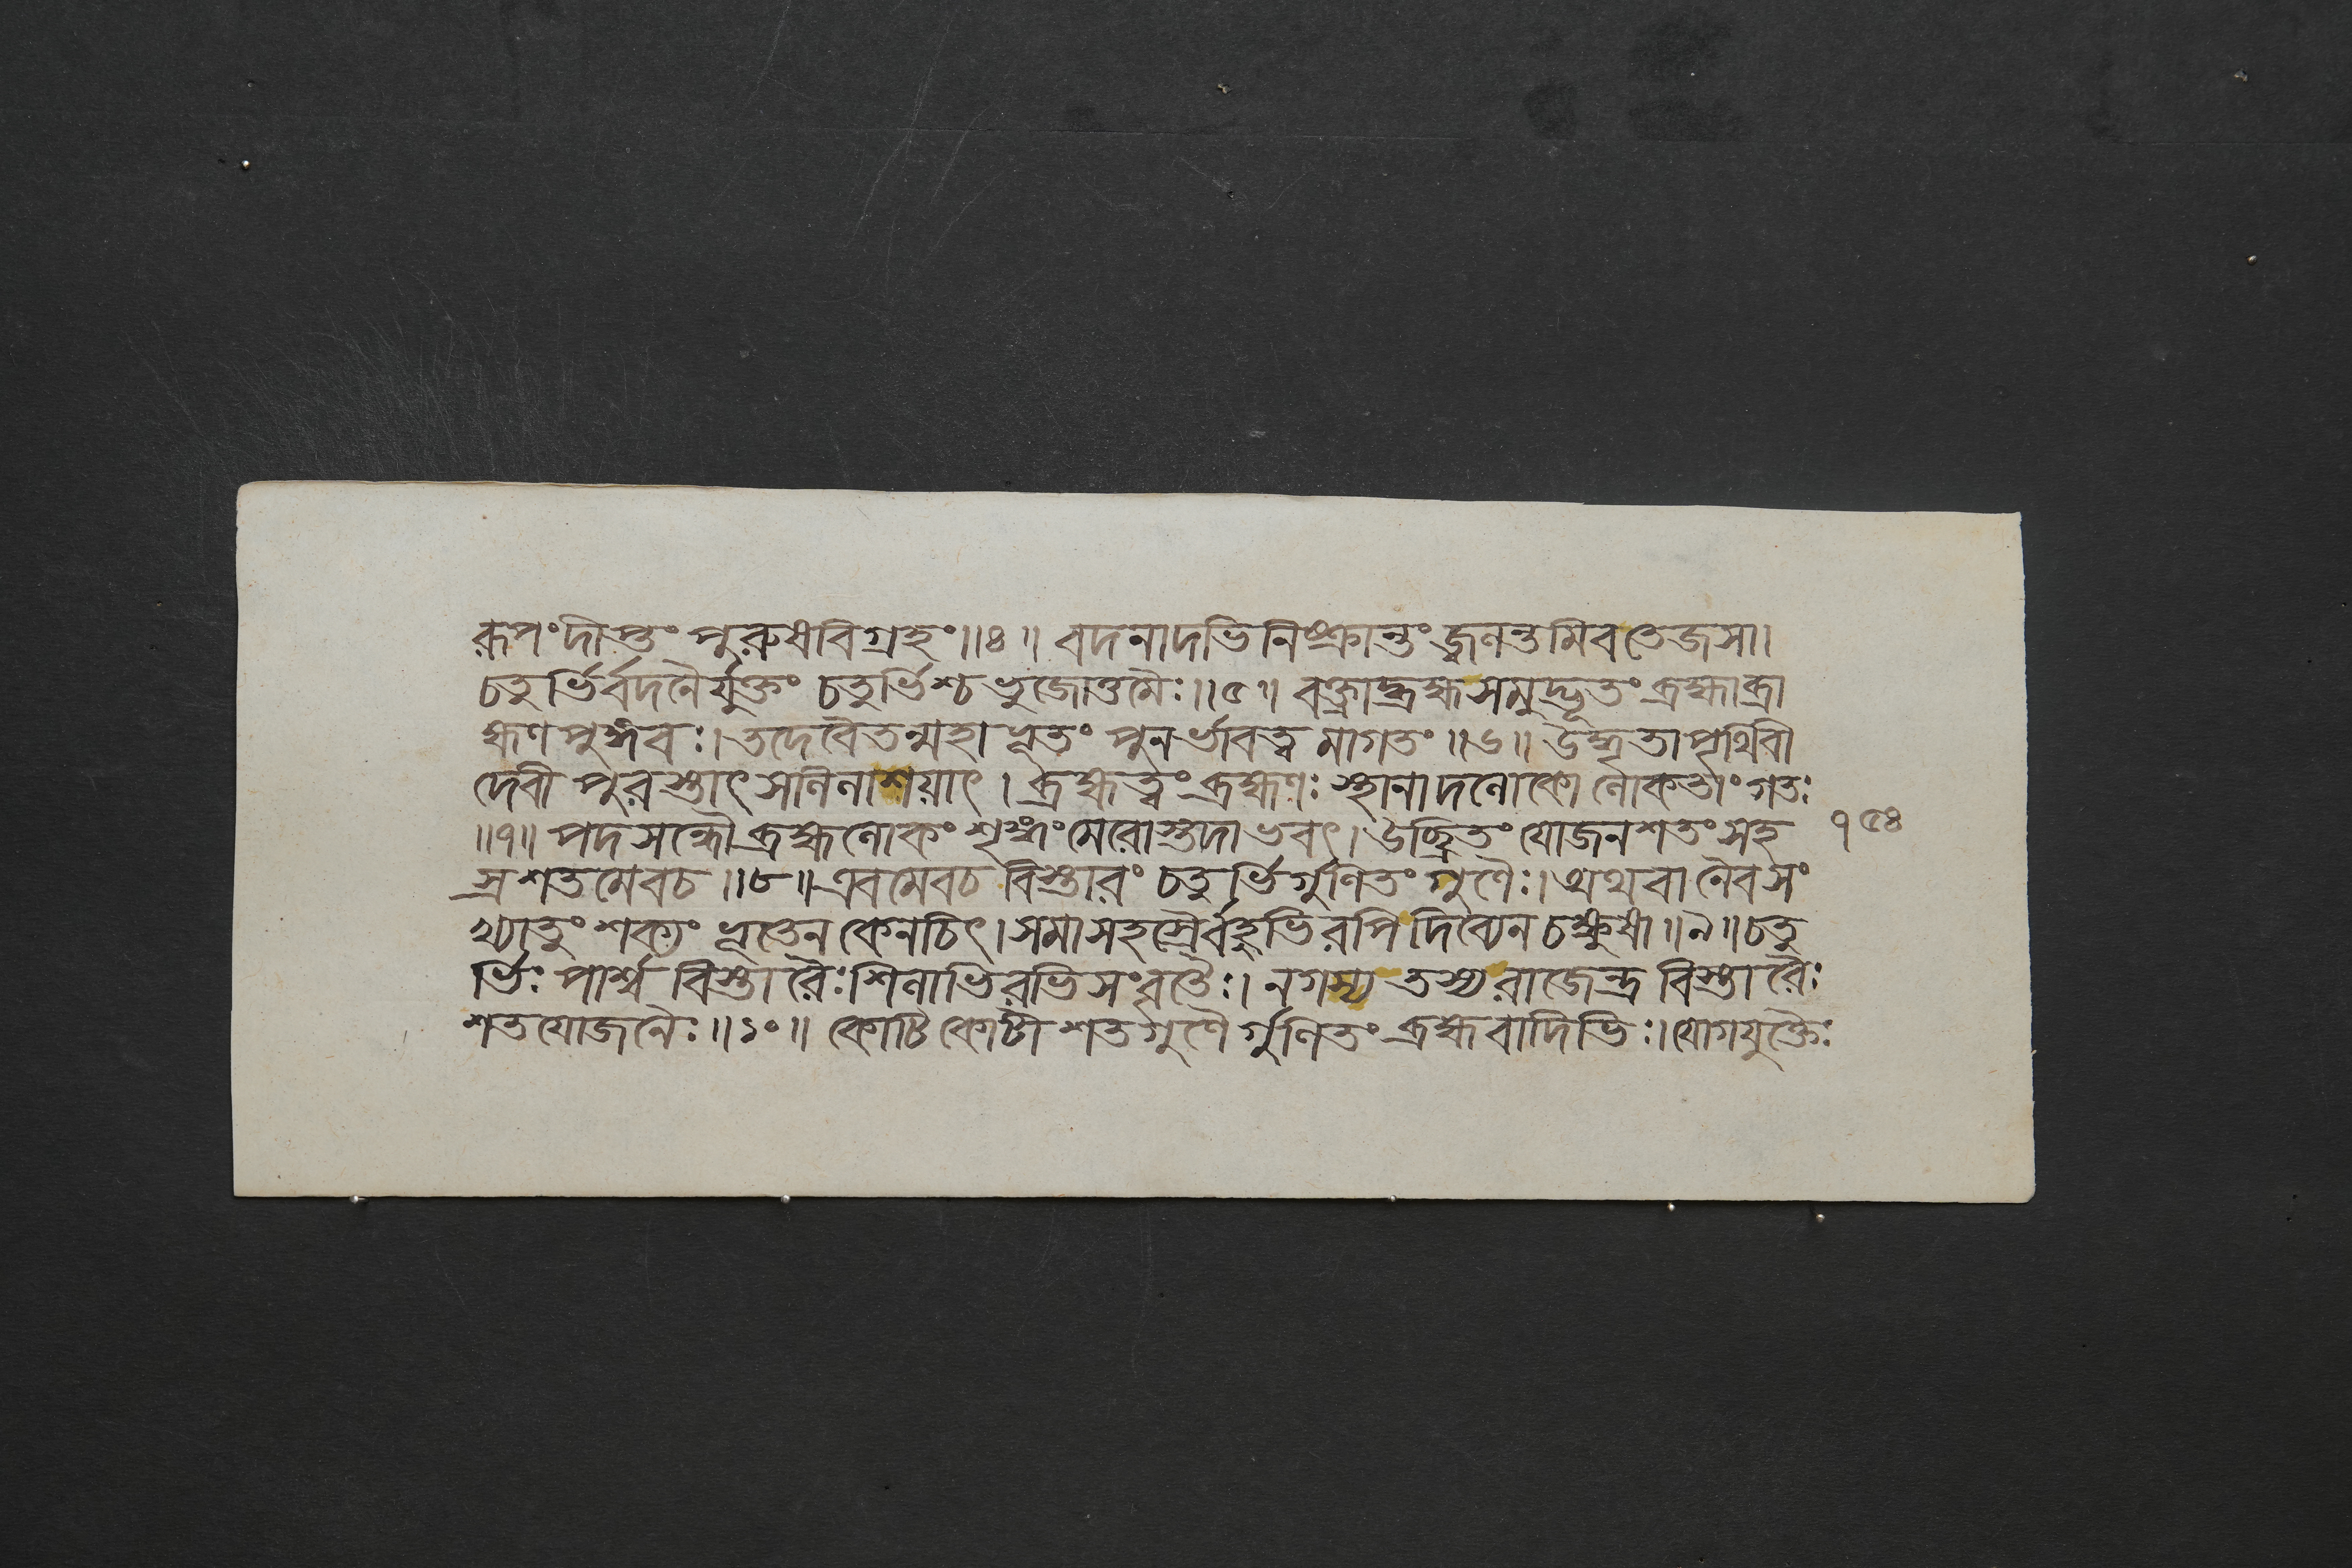 রূপংদীপ্তং পুরুষবিগ্রহং॥৪॥ বদনাদভিনিষ্ক্রান্তং জ্বলন্তমিবতেজসা।
চতুর্ভির্বদনৈর্যুক্তং চতুর্ভিশ্চভুজোত্তমৈঃ॥৫॥ বক্ত্রাদ্ব্রহ্মসমুদ্ভূতং ব্রহ্মাব্রা
হ্মণপুঙ্গবঃ। তদেবৈতন্মহাভূতং পুনর্ভাবত্বমাগতং॥৬॥ উদ্ধৃতাপৃথিবী
দেবী পুরস্তাৎসলিলাশয়াৎ। ব্রহ্মত্বং ব্রহ্মণঃ স্থানাদলোকো লোকতাং গতঃ
॥৭॥ পদসন্ধৌ ব্রহ্মলোকং শৃঙ্গং মেরোস্তদাভবৎ। উচ্ছ্রিতং যোজনশতং সহ ১৫৪
স্রশতমেবচ॥৮॥ এবমেবচ বিস্তারং চতুর্ভির্গুণিতং গুণৈঃ। অথবা নৈবসং
খ্যাতুং শক্যং ভূতেন কেনচিৎ। সমাসহস্রৈর্বহুভিরপিদিব্যেন চক্ষুষা॥৯॥ চতু
র্ভিঃ পার্শ্ববিস্তারৈঃ শিলাভিরভিসংবৃতৈঃ। নগস্য তস্য রাজেন্দ্র বিস্তারৈঃ
শতযোজনৈঃ॥১০॥ কোটিকোটীশতগুণৈর্গুণিতং ব্রহ্মবাদিভিঃ। যোগযুক্তৈঃ